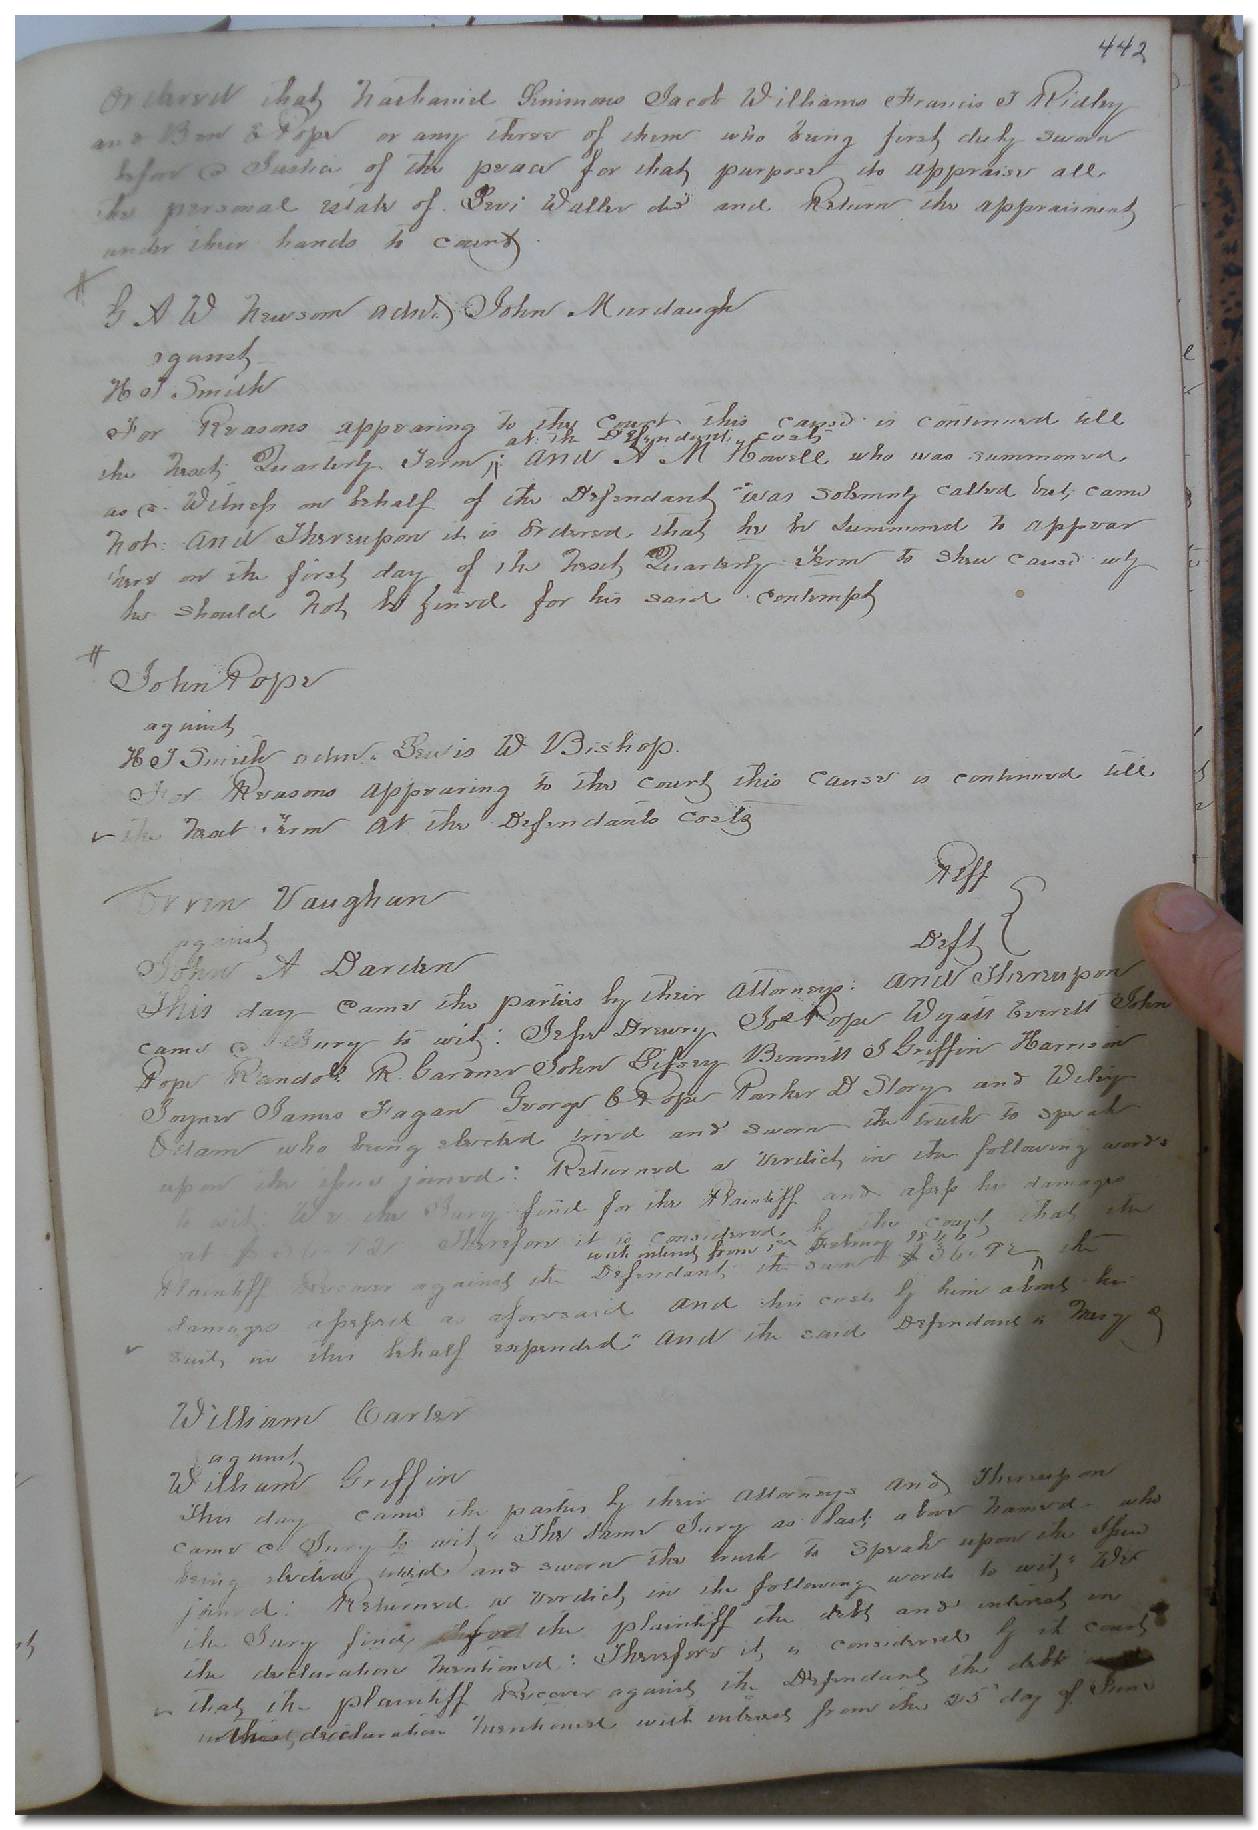 442
Ordered that Nathaniel Simmons Jacob Williams Francis T Ridley
and Ben E Pope or any three of them who being first duly sworn
before a Justice of the peace for that purpose do appraise all
the personal estate of Levi Waller dec'd and Return the appraisment
under their hands to court.
G A W Newsom adm. John Murdaugh
against
H J Smith
For Reasons appearing to the Court this cause is continued till
at the Defendants costs
the Next Quarterly Term ; and A M Howell who was summoned
as a Witness on behalf of the Defendant was solemnly called but came
Not: and Thereupon it is Ordered that he be Summoned to appear
here on the first day of the Next Quarterly Term to shew cause why
he should Not be fined for his said contempt
John Pope
against
H J Smith adm. Lewis W Bishop.
For Reasons appearing to the court this cause is continued till
the Next Term at the Defendants costs
Orren Vaughan Plff
against
John A Darden Deft
This day came the parties by their attorneys: and Thereupon
came a Jury to wit: Jesse Drewry Joe Pope Wyatt Everett John
Pope Randol R. Gardner John Bennett J Griffin Harrison
Joyner James Fagan George E Pope Parker D Story and Wiley
Odam who being elected tried and sworn the truth to speak
upon the issue joined: Returned a Verdict in the following words
to wit: We the Jury find for the Plaintiff and assess his damages
at $36.92 Therefore it is considered by the court that the
with interest from 1st February
Plaintiff Recover against the Defendant the sum $36.92 the
damages assessed as aforesaid and his costs by him about his
suit in this behalf expended" and the said Defendant in Mercy &
William Carter
against
William Griffin
This day came the parties by their attorneys and Thereupon
came a Jury to wit" The same Jury as last above Named who
being elected tried and sworn the truth to speak upon the Issue
joined: Returned a verdict in the following words to wit" We
the Jury find for the plaintiff the debt and interest in
the declaration Mentioned: Therefore it is considered by the court
that the plaintiff Recover against the Defendant the debt
in the declaration Mentioned with interest from the 25 day of June